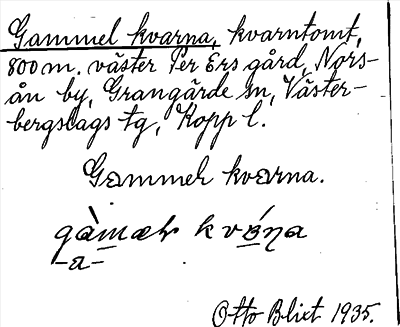 Gammel kvarna, kvarntomt,
800 m. väster Per Ers gård, Nors-
ån by, Grangärde sn, Väster-
bergslags tg, Kopp l.
Gammeh kvarna.
gàmæɫr kváŋa
-a-
Otto Blixt 1935.